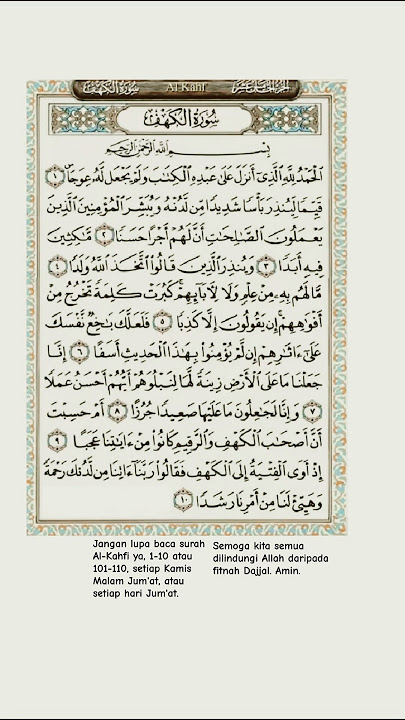 سُورَةُ الكَهْفِ Al-Kahf الجزء الخامس عشر
سُورَةُ الْكَهْفِ
بِسْمِ اللَّهِ الرَّحْمَٰنِ الرَّحِيمِ
الْحَمْدُ لِلَّهِ الَّذِي أَنزَلَ عَلَىٰ عَبْدِهِ الْكِتَابَ وَلَمْ يَجْعَل لَّهُ عِوَجًا ۜ ١
قَيِّمًا لِّيُنذِرَ بَأْسًا شَدِيدًا مِّن لَّدُنْهُ وَيُبَشِّرَ الْمُؤْمِنِينَ الَّذِينَ
يَعْمَلُونَ الصَّالِحَاتِ أَنَّ لَهُمْ أَجْرًا حَسَنًا ٢ مَّاكِثِينَ
فِيهِ أَبَدًا ٣ وَيُنذِرَ الَّذِينَ قَالُوا اتَّخَذَ اللَّهُ وَلَدًا ٤
مَّا لَهُم بِهِ مِنْ عِلْمٍ وَلَا لِآبَائِهِمْ ۚ كَبُرَتْ كَلِمَةً تَخْرُجُ مِنْ
أَفْوَاهِهِمْ ۚ إِن يَقُولُونَ إِلَّا كَذِبًا ٥ فَلَعَلَّكَ بَاخِعٌ نَّفْسَكَ
عَلَىٰ آثَارِهِمْ إِن لَّمْ يُؤْمِنُوا بِهَٰذَا الْحَدِيثِ أَسَفًا ٦ إِنَّا
جَعَلْنَا مَا عَلَى الْأَرْضِ زِينَةً لَّهَا لِنَبْلُوَهُمْ أَيُّهُمْ أَحْسَنُ عَمَلًا
٧ وَإِنَّا لَجَاعِلُونَ مَا عَلَيْهَا صَعِيدًا جُرُزًا ٨ أَمْ حَسِبْتَ
أَنَّ أَصْحَابَ الْكَهْفِ وَالرَّقِيمِ كَانُوا مِنْ آيَاتِنَا عَجَبًا ٩
إِذْ أَوَى الْفِتْيَةُ إِلَى الْكَهْفِ فَقَالُوا رَبَّنَا آتِنَا مِن لَّدُنكَ رَحْمَةً
وَهَيِّئْ لَنَا مِنْ أَمْرِنَا رَشَدًا ١٠
Jangan lupa baca surah
Al-Kahfi ya, 1-10 atau
101-110, setiap Kamis
Malam Jum'at, atau
setiap hari Jum'at.
Semoga kita semua
dilindungi Allah daripada
fitnah Dajjal. Amin.